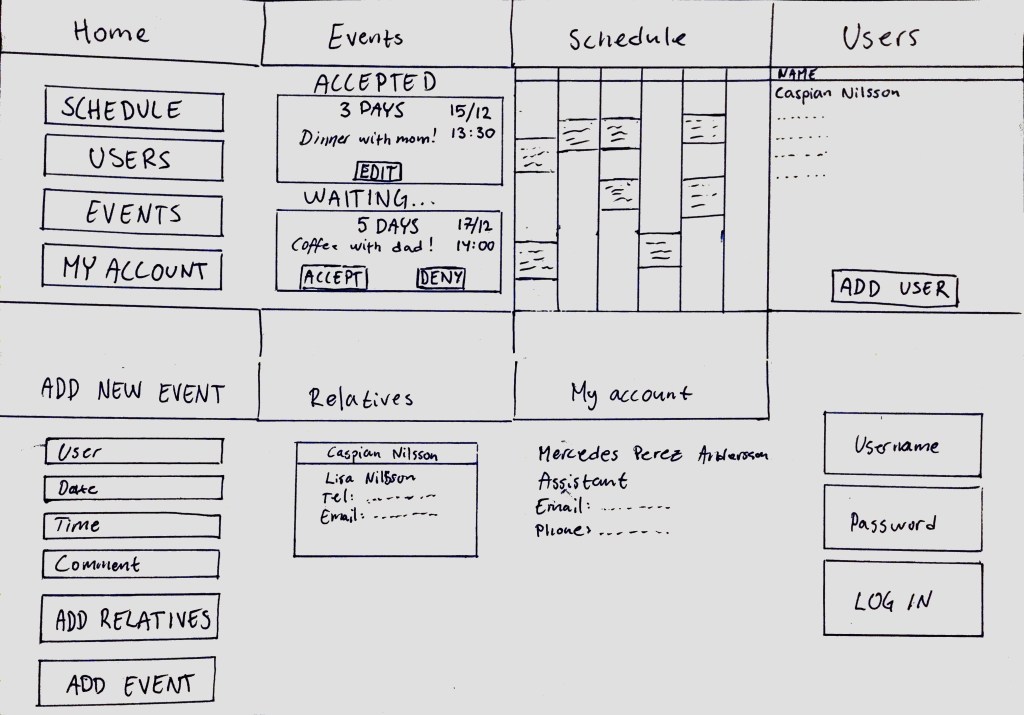 Home
SCHEDULE
USERS
EVENTS
MY ACCOUNT
Events
ACCEPTED
3 DAYS 15/12
Dinner with mom! 13:30
EDIT
WAITING...
5 DAYS 17/12
Coffee with dad! 14:00
ACCEPT DENY
Schedule
Users
NAME
Caspian Nilsson
ADD USER
ADD NEW EVENT
User
Date
Time
Comment
ADD RELATIVES
ADD EVENT
Relatives
Caspian Nilsson
Lisa Nilsson
Tel:
Email:
My account
Mercedes Perez
Assistant
Email:
Phone:
Username
Password
LOG IN